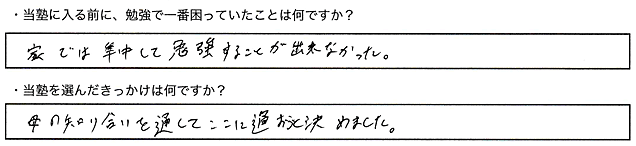 ・当塾に入る前に、勉強で一番困っていたことは何ですか？
家では集中して勉強することが出来なかった。
・当塾を選んだきっかけは何ですか？
母の知り合いを通してここに通おうと決めました。